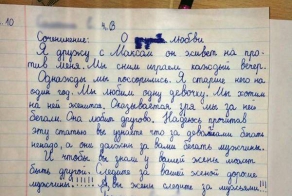 10
4.В
Сочинение: О любви
Я дружу с Максам он живет на про-
тив меня. Мы сним играем каждый вечер.
Однажды мы поссорились. Я старше него на
один год. Мы любим одну девочку. Мы хотим
на ней женится. Оказывается зря мы за ней
бегали. Она любит другова. Надеюсь прочитав
эту статью вы узнаете что за девочками бегать
ненада, а они должни за вами бегать мужчины.
И чтобы вы знали у вашей жены может
быть другой. Следите за вашей женой дорогие
мужчины!!!!! А вы жени следите за мужьями